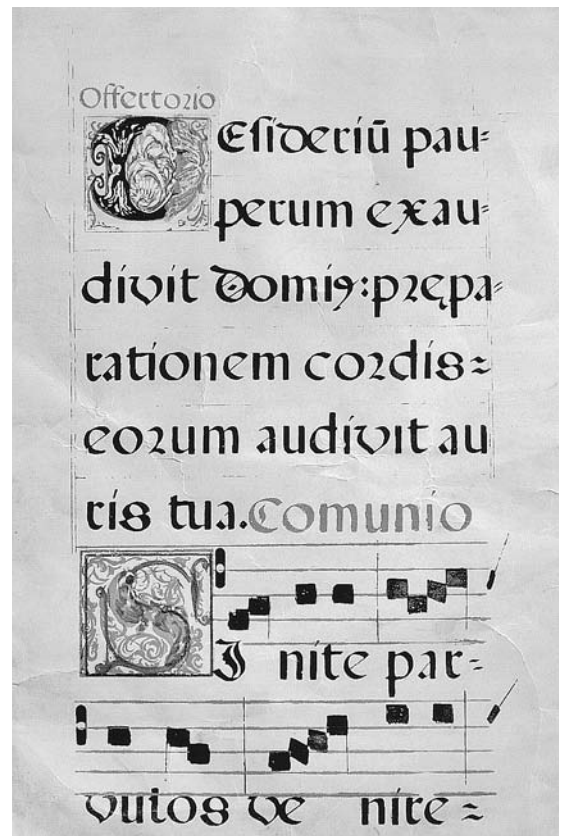 Offertorio
DEsideriū pau=
perum exau=
divit Domiꝰ: prępa=
rationem cordis=
eorum audivit au
ris tua. Comunio
SI nite par=
vulos ve nite =